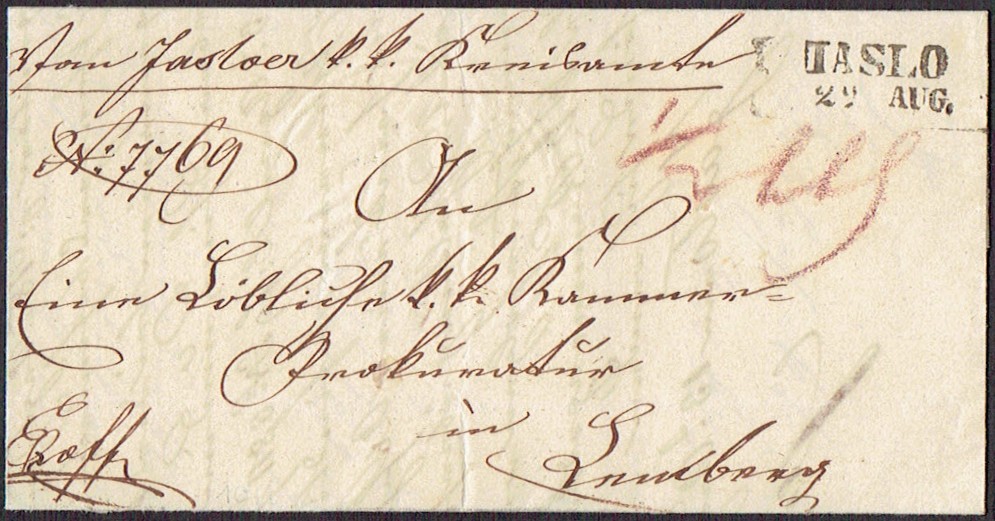 Vom Jasloer k. k. Kreisamte
JASLO
29 AUG.
No. 7769
An
Eine Löbliche k. k. Kammer=
Prokuratur
in
Lemberg